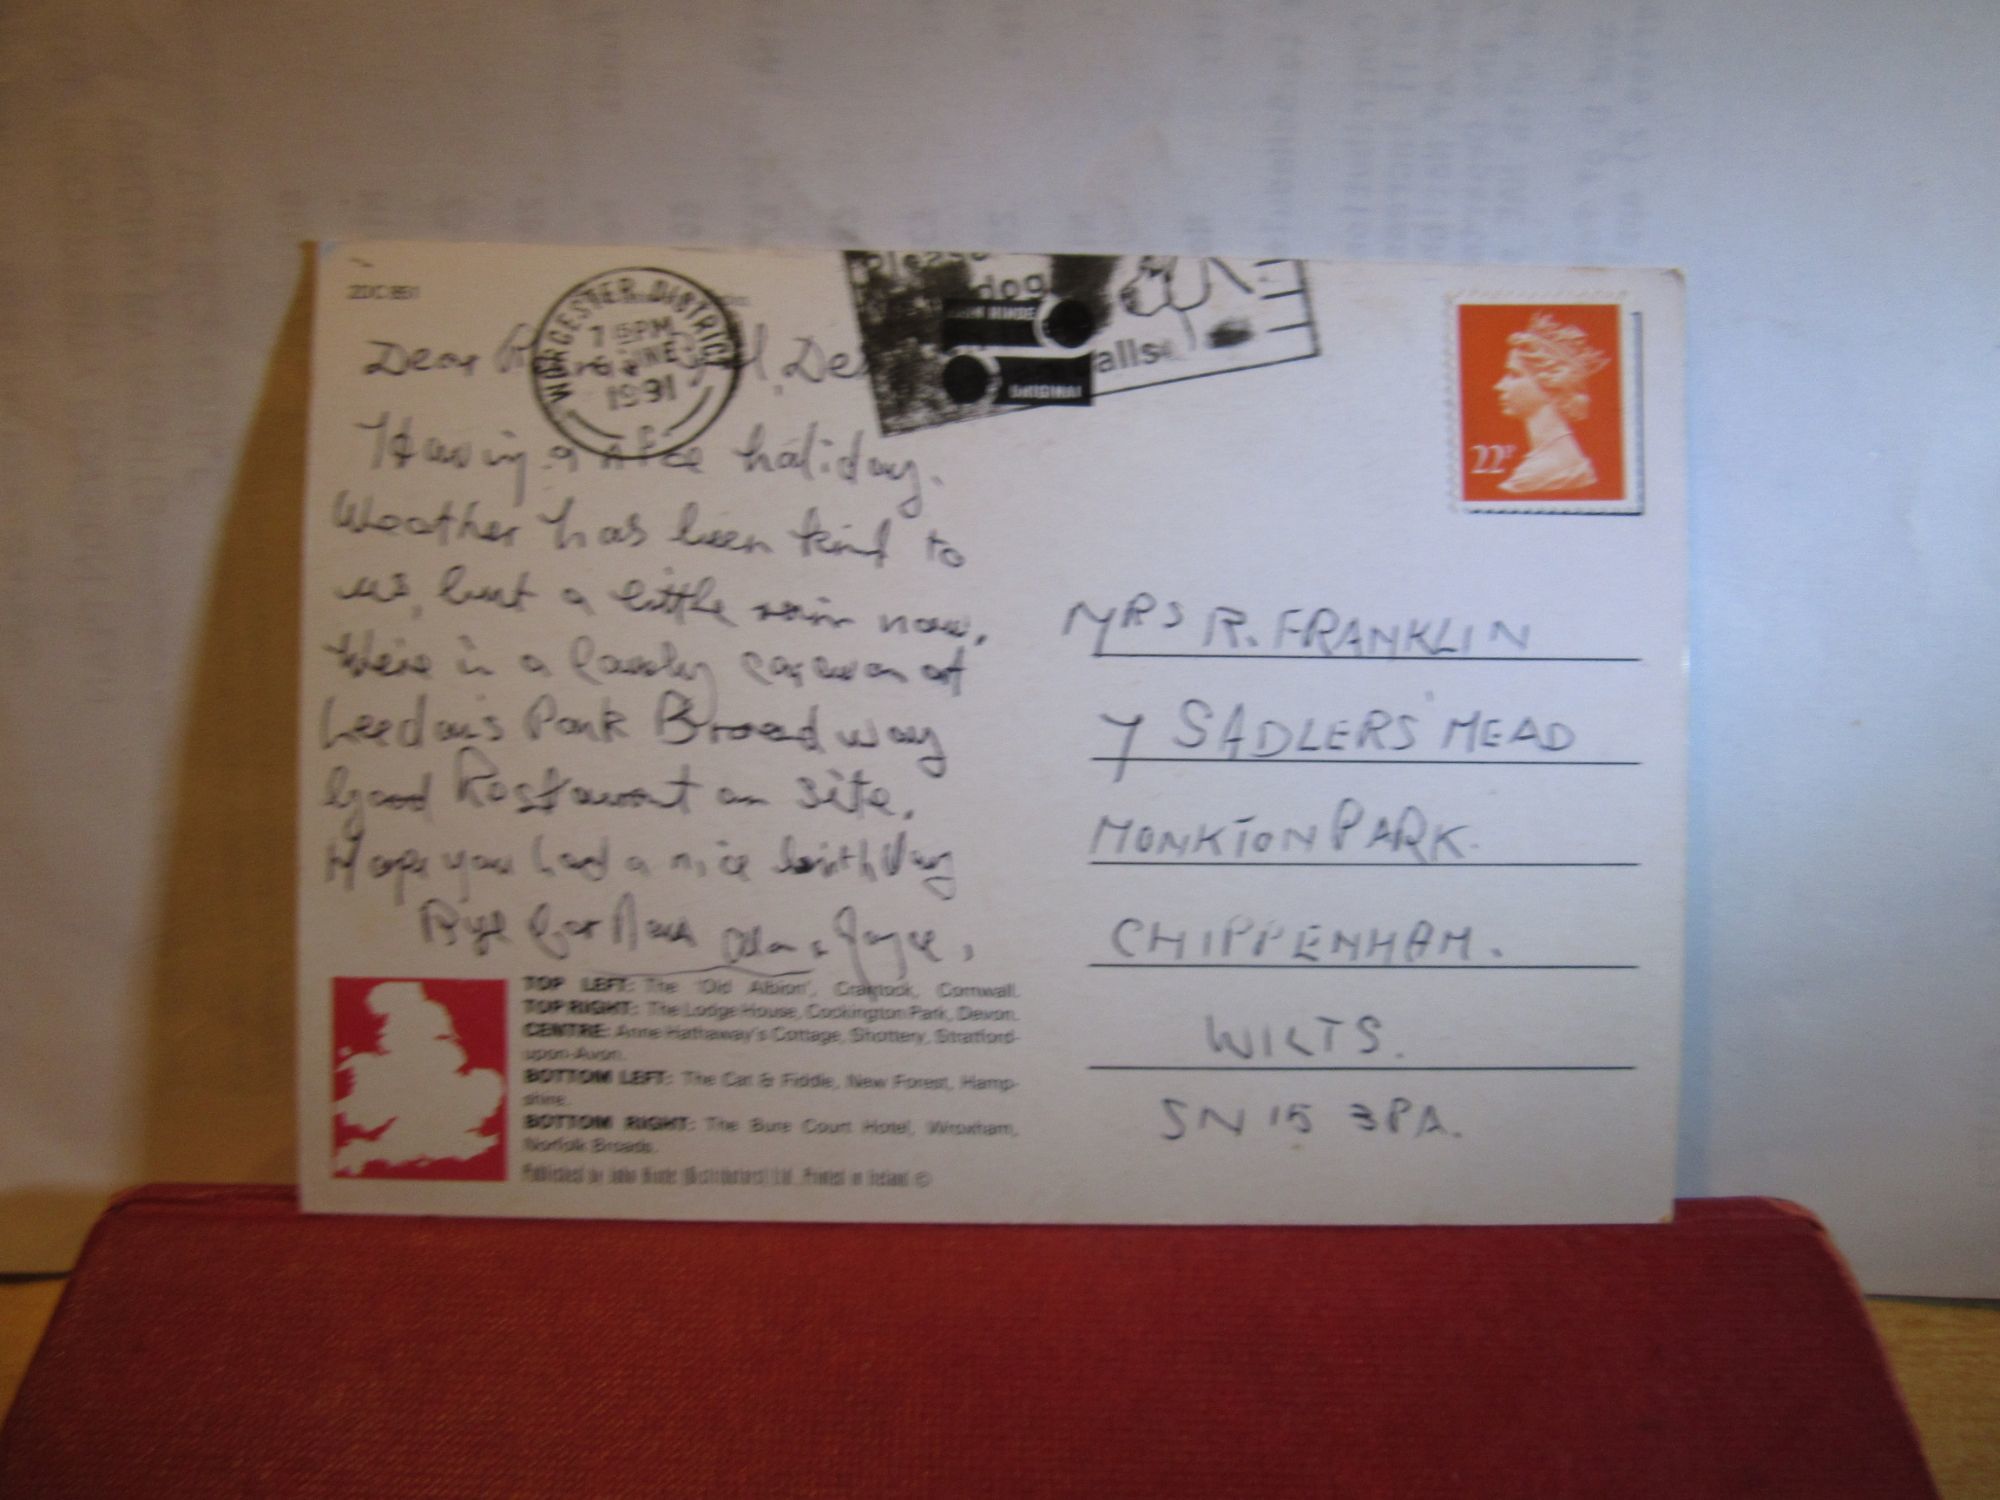 2DC 851
WORCESTER DISTRICT
7 15PM
JNE
1991
Please
dog
JOHN HINDE
ORIGINAL
alls
22P
Dear
Having a nice holiday.
Weather has been kind to
us, but a little rain now.
We're in a lovely caravan at
Leedons Park Broadway
Good Restaurant on site.
Hope you had a nice birthday
Bye for Now Alan & Joyce.
MRS R. FRANKLIN
7 SADLERS MEAD
MONKTON PARK.
CHIPPENHAM.
WILTS.
SN 15 3PA.
TOP LEFT: The 'Old Albion', Crantock, Cornwall.
TOP RIGHT: The Lodge House, Cockington Park, Devon.
CENTRE: Anne Hathaway's Cottage, Shottery, Stratford-
upon-Avon.
BOTTOM LEFT: The Cat & Fiddle, New Forest, Hamp-
shire.
BOTTOM RIGHT: The Bure Court Hotel, Wroxham,
Norfolk Broads.
Published by John Hinde (Distributors) Ltd. Printed in Ireland ©